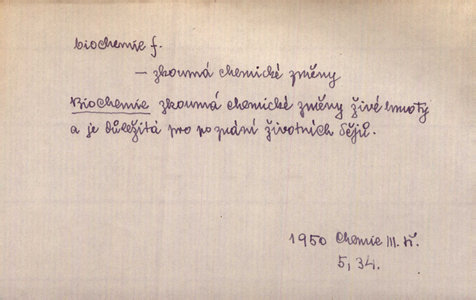 biochemie f.
— zkoumá chemické změny
Biochemie zkoumá chemické změny živé hmoty
a je důležitá pro poznání životních dějů.
1950 Chemie III. tř.
5, 34.